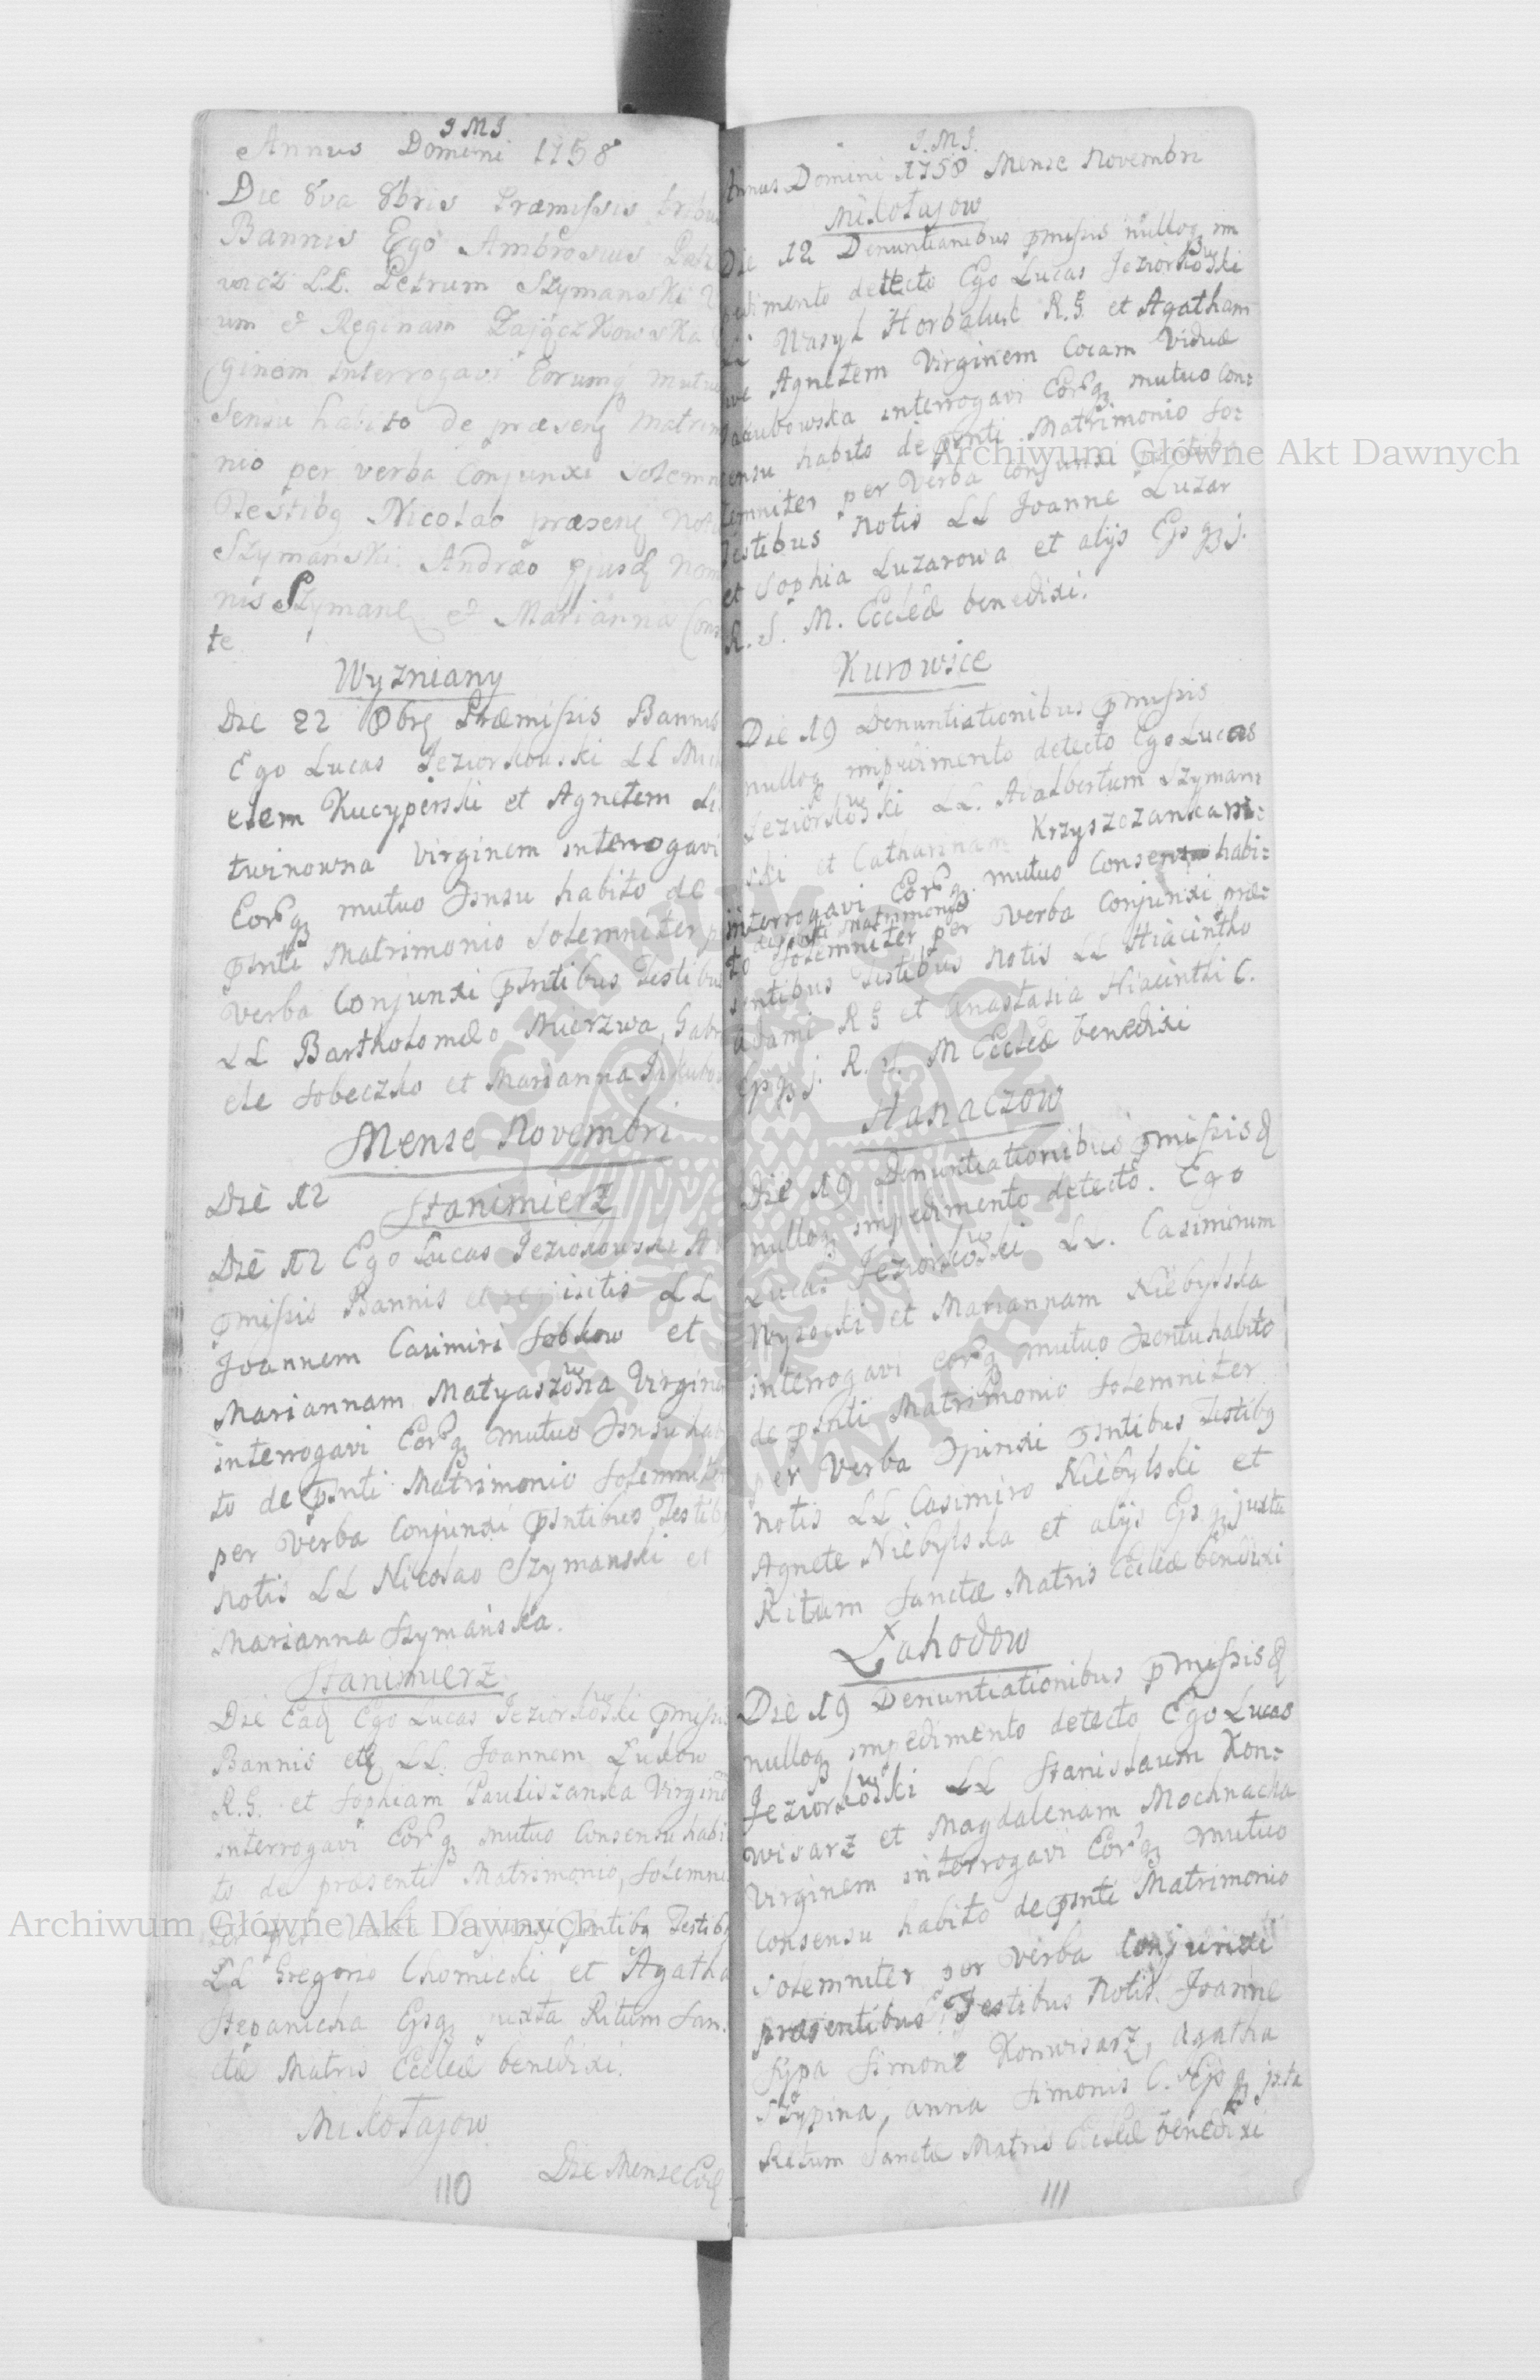 J M J
Annus Domini 1758
Die 8va 8bris Præmissis tribus
Bannis Ego Ambrosius
LL. Petrum Szymanski
um et Reginam Zajączkowska
ginem interrogavi Eorumq mutuo
sensu habito de præsenti matrimo
nio per verba Conjunxi solemn
Testibq Nicolao præsenti
Szymański Andræo ejusd nomi
nis Szyman et Marianna
te
Wyzniany
Die 22 8bris Præmissis Bannis
Ego Lucas Jeziorkowski LL Mich
elem Kucyperski et Agnetem Li
twinowna Virginem interrogavi
Eorq mutuo Consensu habito de
pnti Matrimonio Solemniter p
verba Conjunxi pntibus Testibus
LL Bartholomeo Mierzwa, Gabri
ele Sobeczko et Marianna Jakubow
Mense Novembri
Die 12 Stanimierz
Die 12 Ego Lucas Jeziorkowski
pmissis Bannis et LL
Joannem Casimiri Sobkow et
Mariannam Matyaszowna Virginem
interrogavi Eorq mutuo Consensu habi
to de pnti Matrimonio Solemniter
per Verba Conjunxi pntibus Testibq
notis LL Nicolao Szymanski et
Marianna Szymańska.
Stanimierz
Die Ead Ego Lucas Jeziorkowski pmissis
Bannis etc LL. Joannem Lukow
R.G. et Sophiam Pauliszanka Virginem
interrogavi Eorq mutuo Consensu habi
to de præsenti Matrimonio, Solemni
ter per Verba Conjunxi pntibq Testibq
LL Gregorio Chomicki et Agatha
Stepanicha Eosq juxta Ritum San
ctæ Matris Eccleæ benedixi.
Mikołajow
Die Mense Eod
110
J. M. J.
Annus Domini 1758 Mense Novembri
Mikołajow
Die 12 Denuntianibus pmissis nulloq im
pedimento detecto Ego Lucas Jeziorkowski
LL Wasyl Horbaluk R.G. et Agatham
sive Agnetem Virginem Cocam Viduæ
Jakubowska interrogavi Eorq mutuo Con:
sensu habito de pnti Matrimonio So:
lemniter per Verba Conjunxi pntibq
Testibus notis LL Joanne Luzar
et Sophia Luzarowa et alijs Eosq j.
R. S. M. Eccleæ benedixi.
Kurowice
Die 19 Denuntiationibus pmissis
nulloq impedimento detecto Ego Lucas
Jeziorkowski LL. Adalbertum Szyman:
ski et Catharinam Krzyszczankam
interrogavi Eorq mutuo Consensu habi:
to de pnti Matrimonio Solemniter per Verba Conjunxi præ:
sentibus Testibus notis LL Hiacintho
Adami R G et Anastasia Hiacinthi C.
Eosq j. R. S. M Eccleæ benedixi
Hanaczow
Die 19 Denuntiationibus pmissis &
nulloq impedimento detecto. Ego
Lucas Jeziorkowski LL. Casimirum
Wysocki et Mariannam Niebylska
interrogavi eorq mutuo Consensu habito
de pnti Matrimonio Solemniter
per Verba Conjunxi pntibus Testibq
notis LL Casimiro Niebylski et
Agnete Niebylska et alijs Eosq juxta
Ritum Sanctæ Matris Eccleæ benedixi
Lahodow
Die 19 Denuntiationibus pmissis &
nulloq impedimento detecto Ego Lucas
Jeziorkowski LL Stanislaum Kon:
wisarz et Magdalenam Mochnacka
Virginem interrogavi Eorq mutuo
Consensu habito de pnti Matrimonio
Solemniter per Verba Conjunxi
præsentibus Testibus Notis Joanne
Sypa Simone Konwisarz, Agatha
Szypina, Anna Simonis C. Eosq jxta
Ritum Sanctæ Matris Eccleæ benedixi
111
Archiwum Główne Akt Dawnych
Archiwum Główne Akt Dawnych
ARCHIWUM GŁÓWNE AKT DAWNYCH